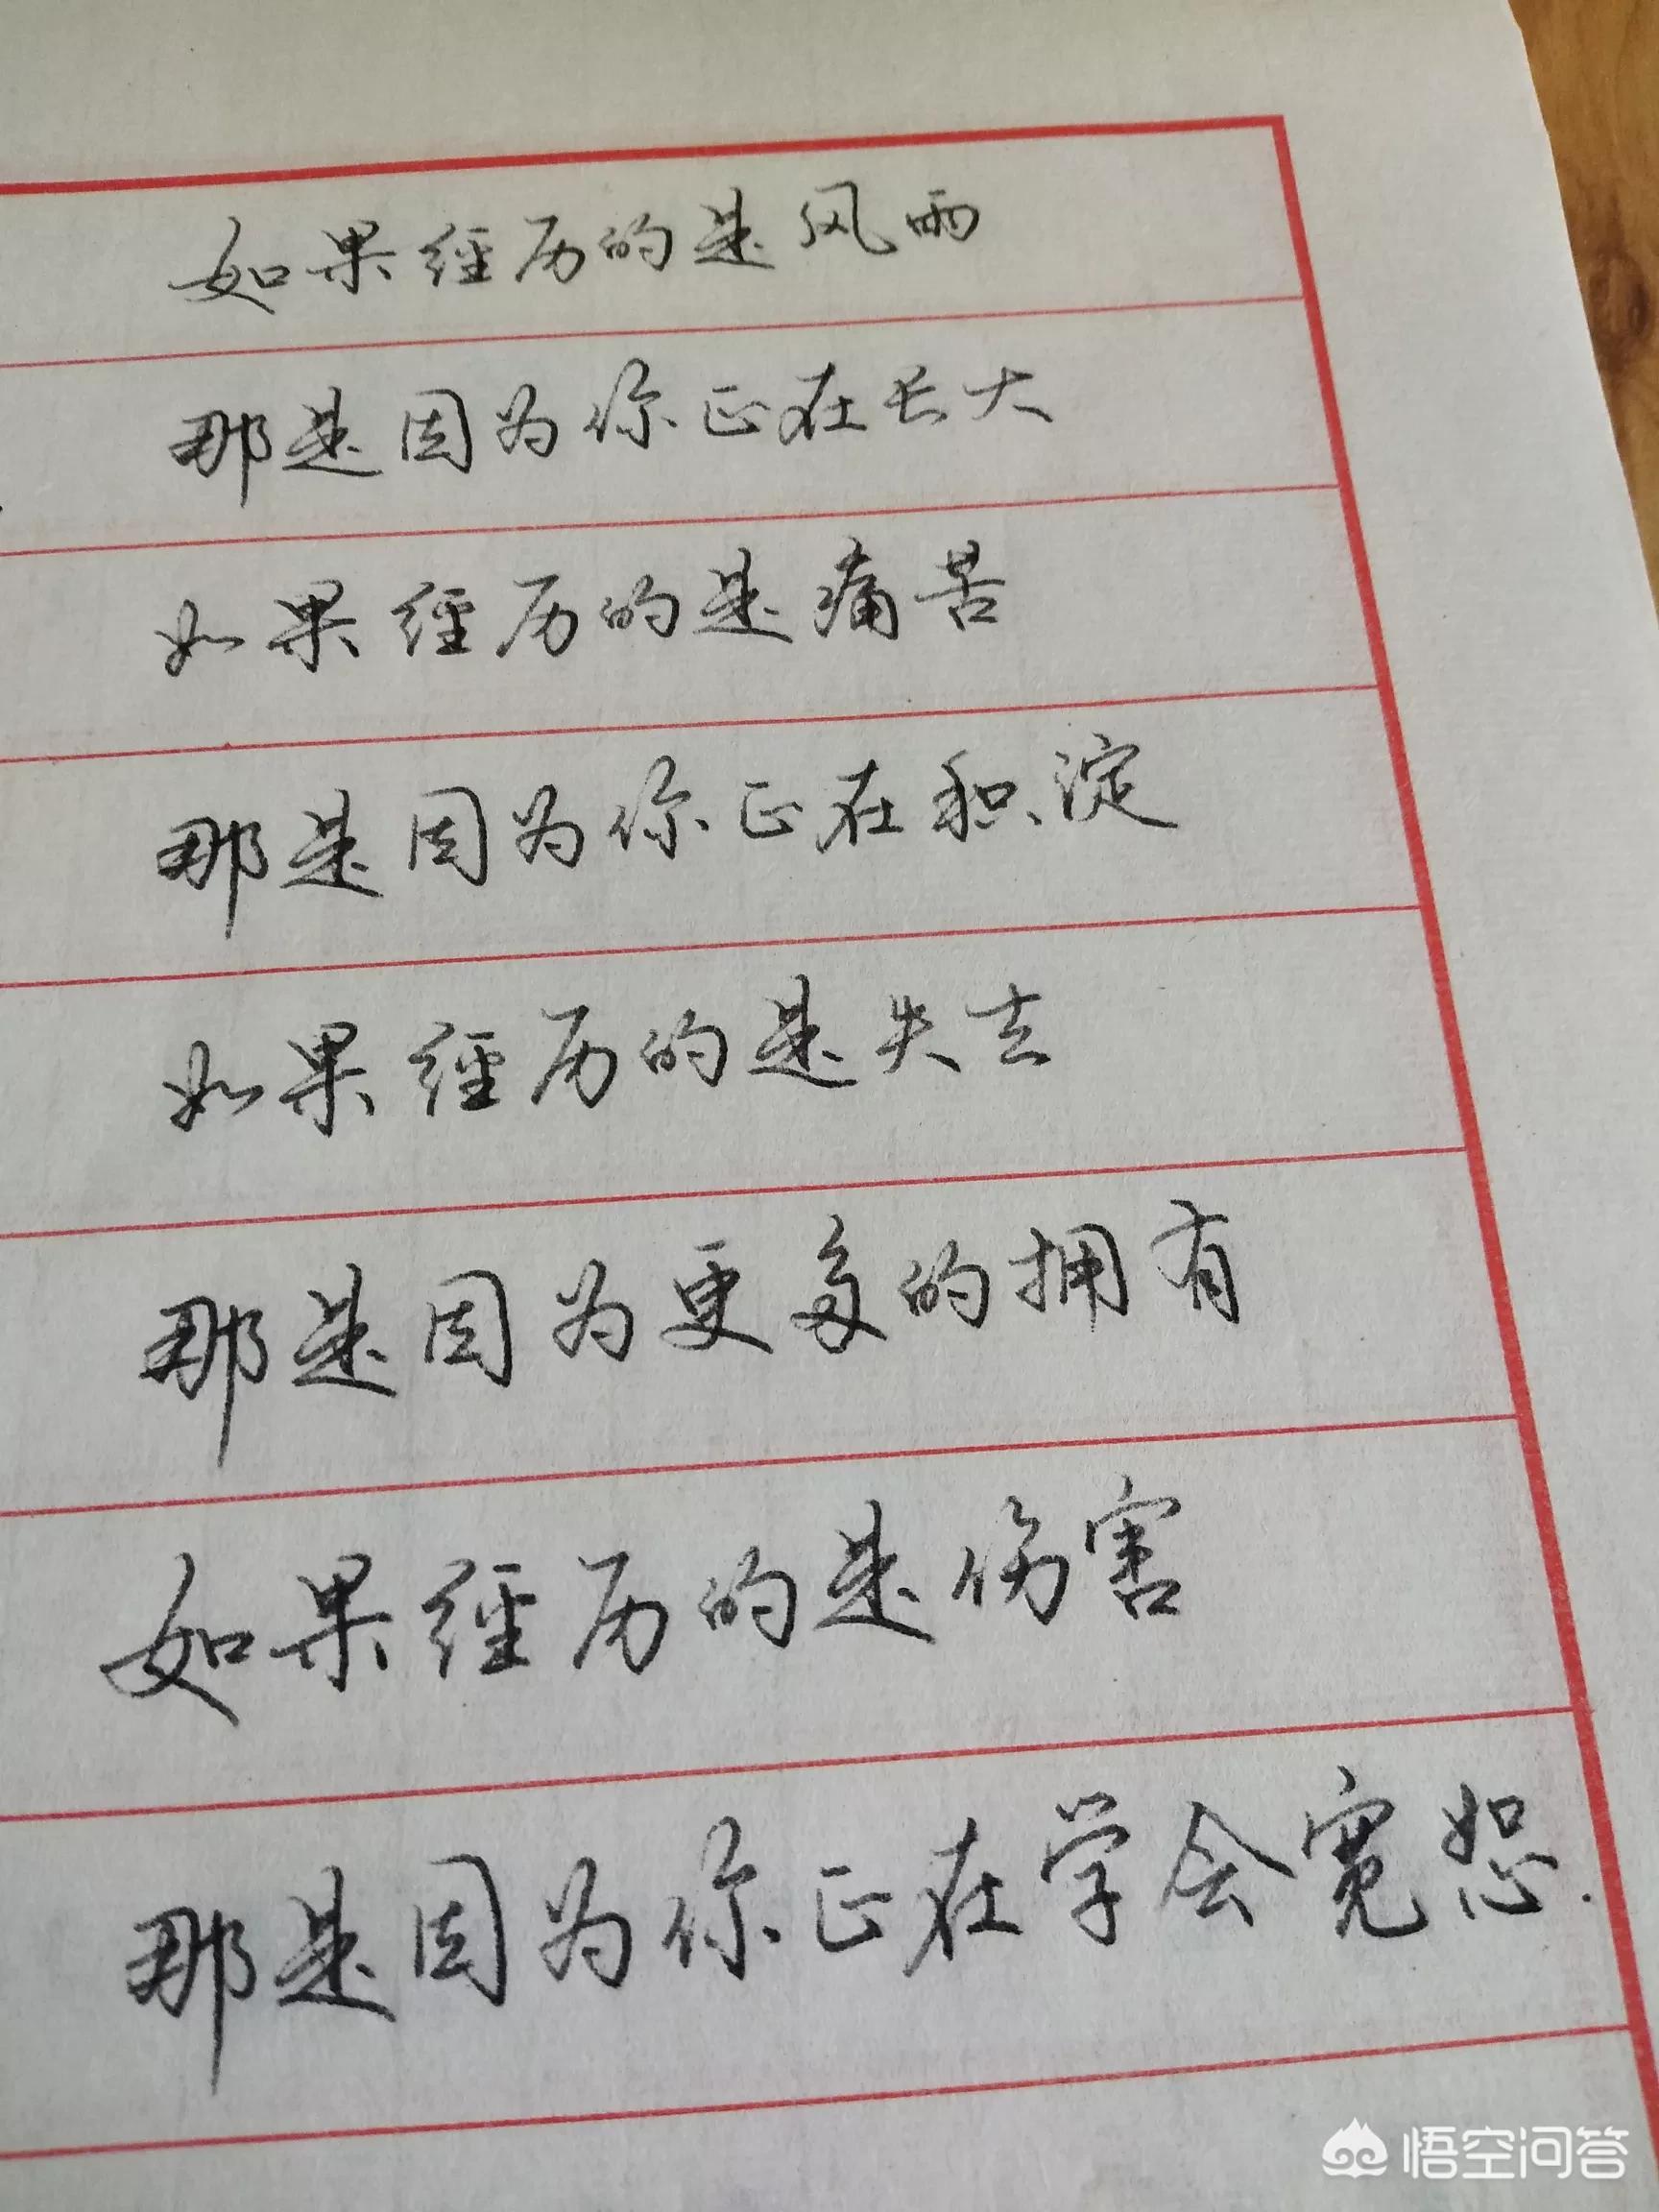 如果经历的是风雨
那是因为你正在长大
如果经历的是痛苦
那是因为你正在积淀
如果经历的是失去
那是因为更多的拥有
如果经历的是伤害
那是因为你正在学会宽恕.
悟空问答